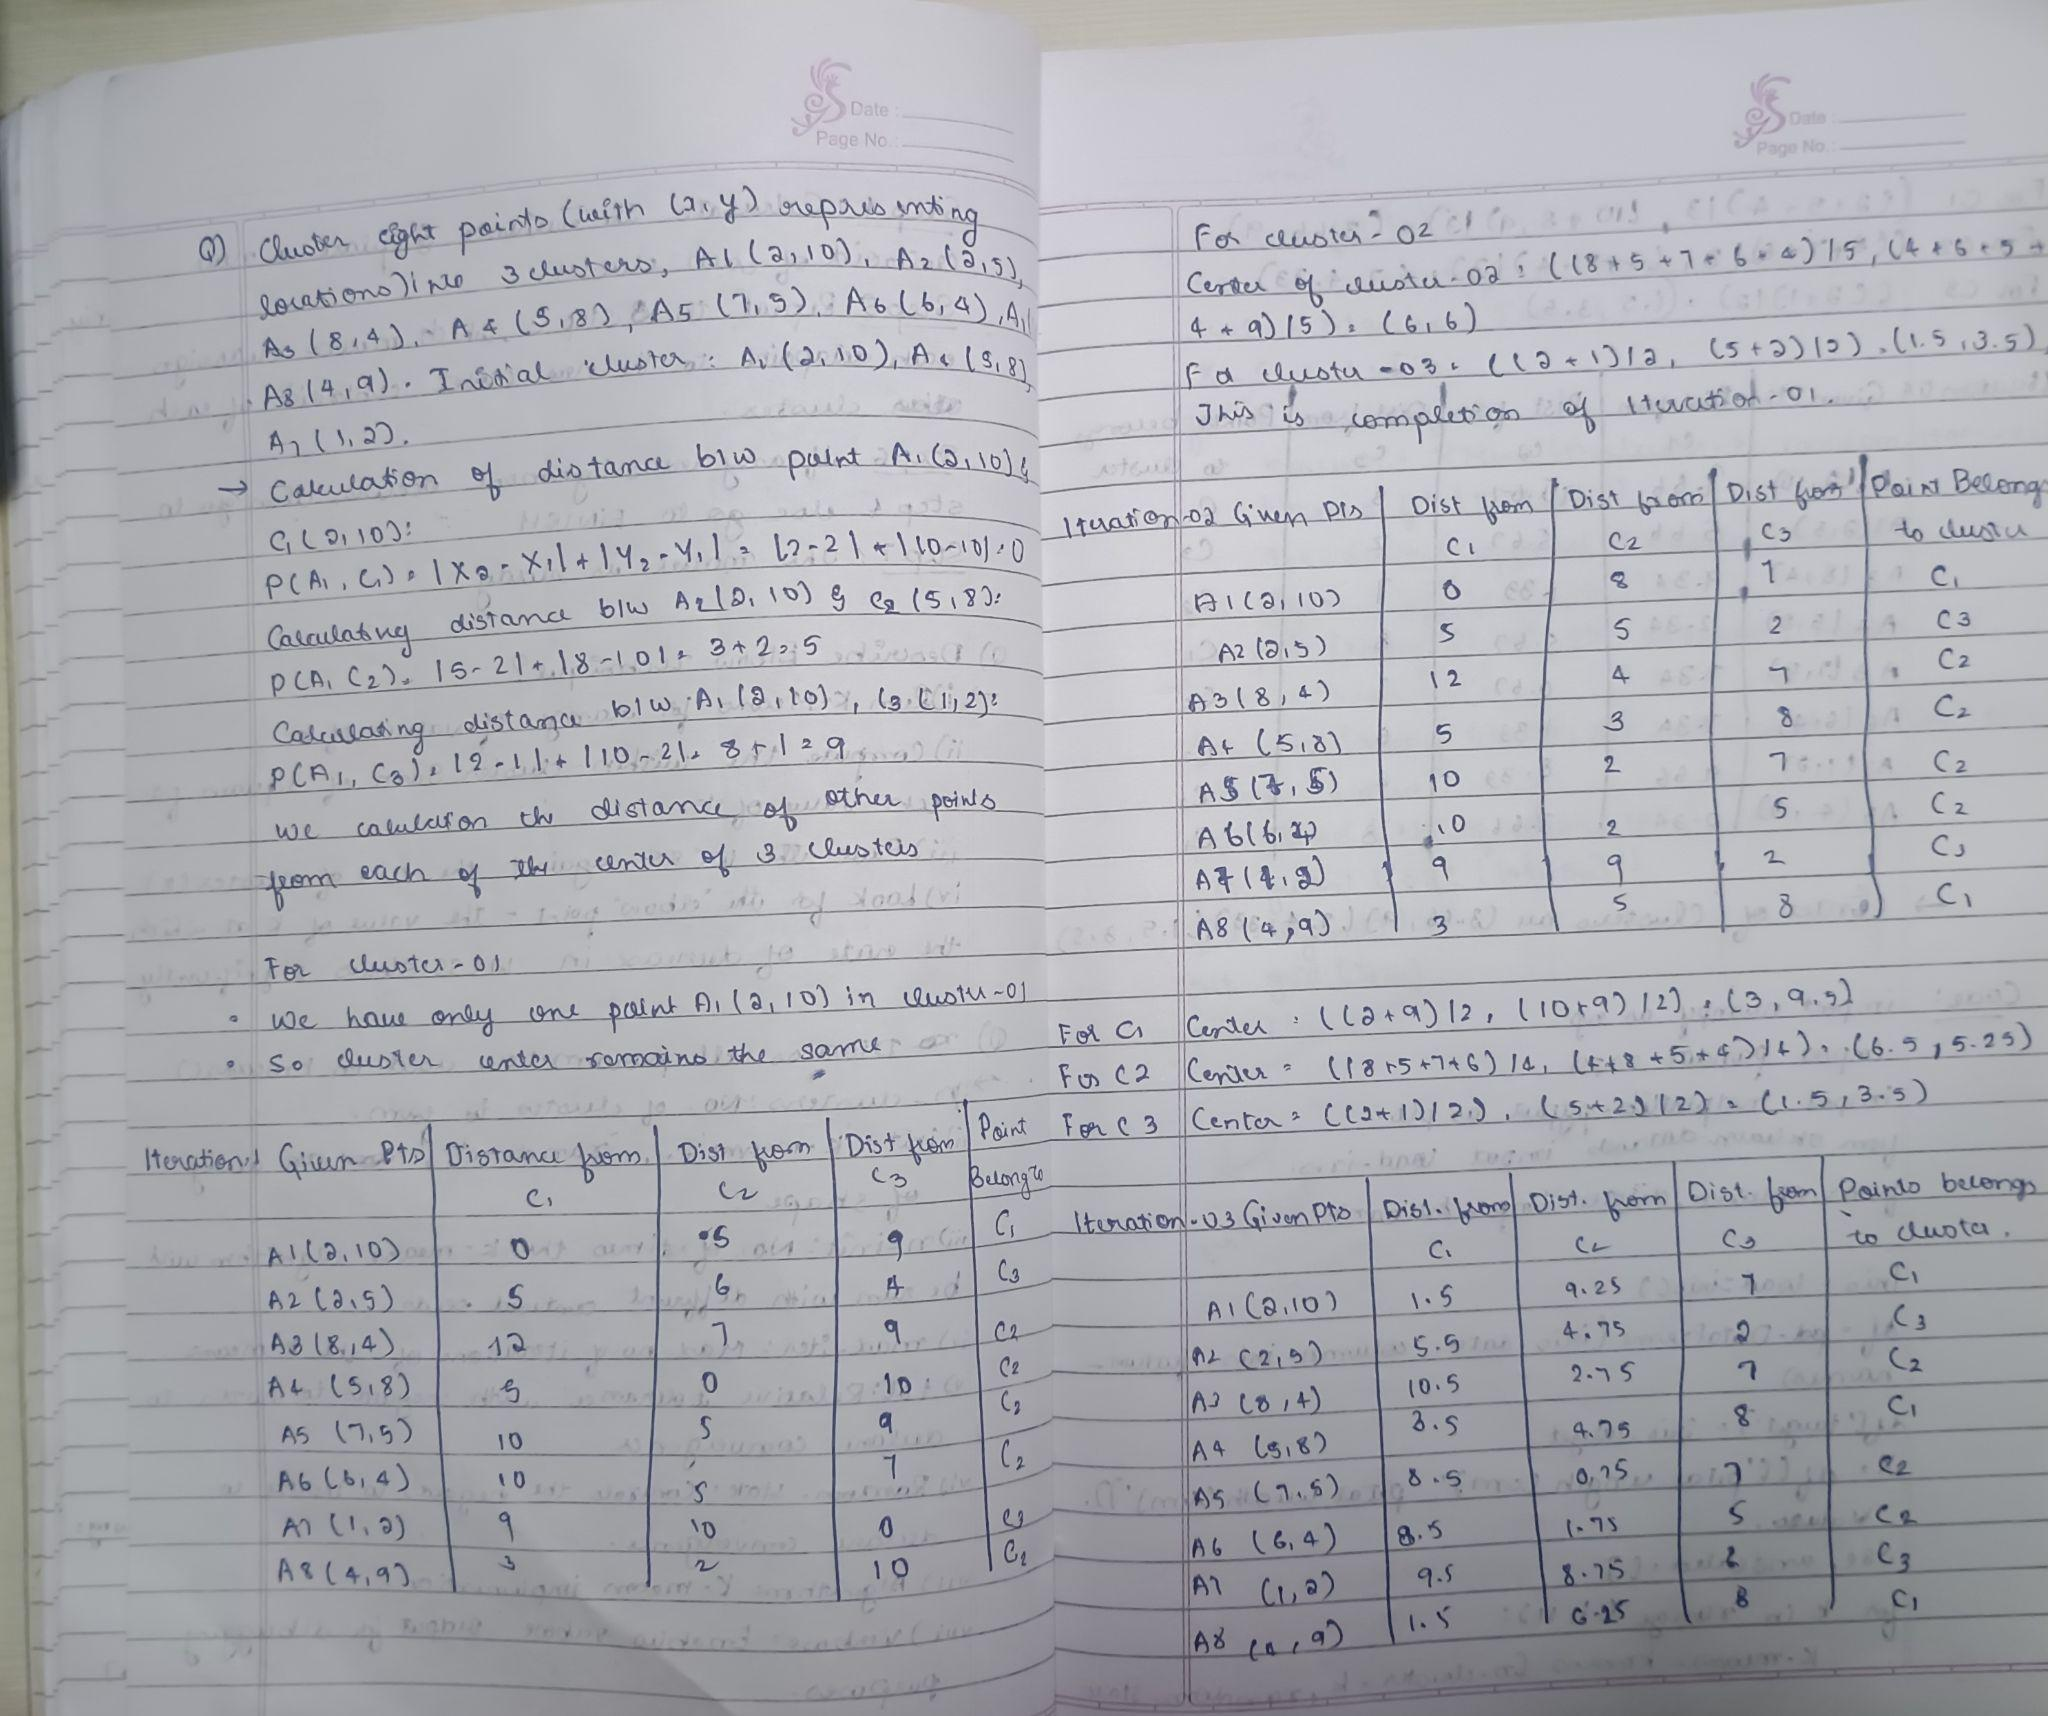 Date :
Page No. :
Q) Cluster eight points (with (x, y) representing
locations) into 3 clusters, A1 (2, 10), A2 (2,5),
A3 (8,4), A4 (5,8), A5 (7,5), A6 (6,4), A
A8 (4,9). Initial cluster : A1 (2,10), A4 (5,8),
A7 (1,2).
→ Calculation of distance b/w point A1 (2,10) &
C1 (2,10):
P(A1, C1) = |X2 - X1| + |Y2 - Y1| = |2-2| + |10-10| = 0
Calculating distance b/w A2 (2,10) & C2 (5,8):
P(A1 C2) = |5-2| + |8-10| = 3+2=5
Calculating distance b/w A1 (2,10), C3 (1,2):
P(A1, C3) = |2-1| + |10-2| = 8+1=9
we calculation the distance of other points
from each of the center of 3 clusters
For cluster-01
• we have only one point A1 (2,10) in cluster-01
• So cluster center remains the same
Iteration1 Given Pts Distance from C1 Dist from C2 Dist from C3 Point Belong to
A1(2,10) 0 5 9 C1
A2 (2,5) 5 6 4 C3
A3 (8,4) 12 7 9 C2
A4 (5,8) 5 0 10 C2
A5 (7,5) 10 5 9 C2
A6 (6,4) 10 5 7 C2
A7 (1,2) 9 10 0 C3
A8 (4,9) 3 2 10 C2
Date :
Page No. :
For cluster-02
Center of cluster-02 : ((8+5+7+6+4)/5, (4+8+5+
4+9)/5) = (6,6)
For cluster-03 = ((2+1)/2, (5+2)/2) = (1.5, 3.5)
This is completion of Iteration-01.
Iteration-02 Given Pts Dist from C1 Dist from C2 Dist from C3 Point Belong to cluster
A1(2,10) 0 8 7 C1
A2 (2,5) 5 5 2 C3
A3 (8,4) 12 4 7 C2
A4 (5,8) 5 3 8 C2
A5 (7,5) 10 2 7 C2
A6(6,4) 10 2 5 C2
A7(1,2) 9 9 2 C3
A8 (4,9) 3 5 8 C1
For C1 Center : ((2+9)/2, (10+9)/2) = (3, 9.5)
For C2 Center = ((8+5+7+6)/4, (4+8+5+4)/4) = (6.5, 5.25)
For C3 Center = ((2+1)/2), (5+2)/2) = (1.5, 3.5)
Iteration-03 Given Pts Dist. from C1 Dist. from C2 Dist. from C3 Points belongs to cluster.
A1(2,10) 1.5 9.25 7 C1
A2 (2,5) 5.5 4.75 2 C3
A3 (8,4) 10.5 2.75 7 C2
A4 (5,8) 3.5 4.75 8 C1
A5 (7,5) 8.5 0.75 7 C2
A6 (6,4) 8.5 1.75 5 C2
A7 (1,2) 9.5 8.75 2 C3
A8 (4,9) 1.5 6.25 8 C1